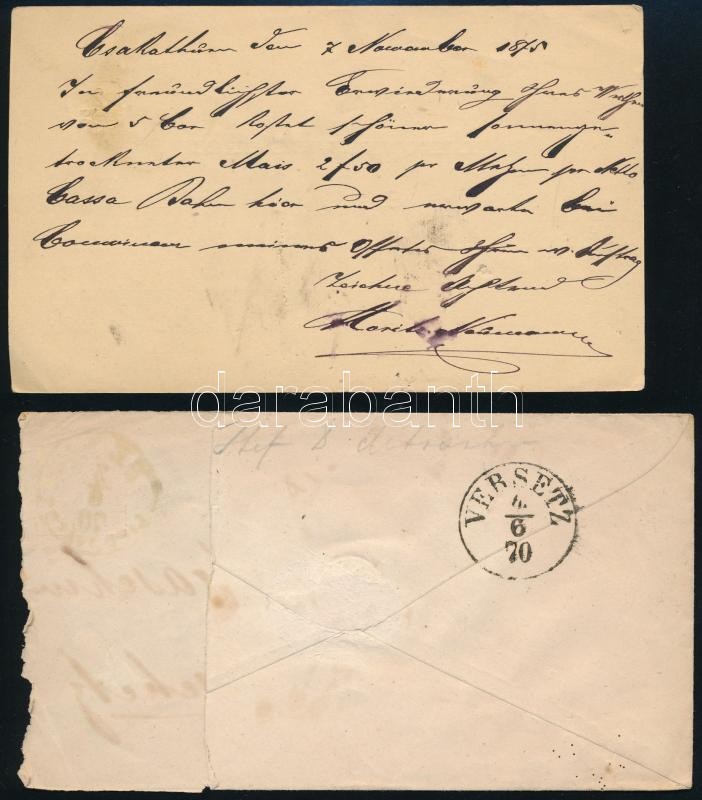 Csakathurn den 7 November 1875
In freundlichster Erwiederung Ihres Werthen
vom 5 Cor kostet schöner sonnenge-
trockneter Mais 2f50 pr Metzen pr Netto
Cassa Bahn hier und erwarte bei
Convinienz meines Offertes Ihren w. Auftrag
Zeichne Achtend
Moritz Neumann
darabanth
VERSETZ
4/6
70